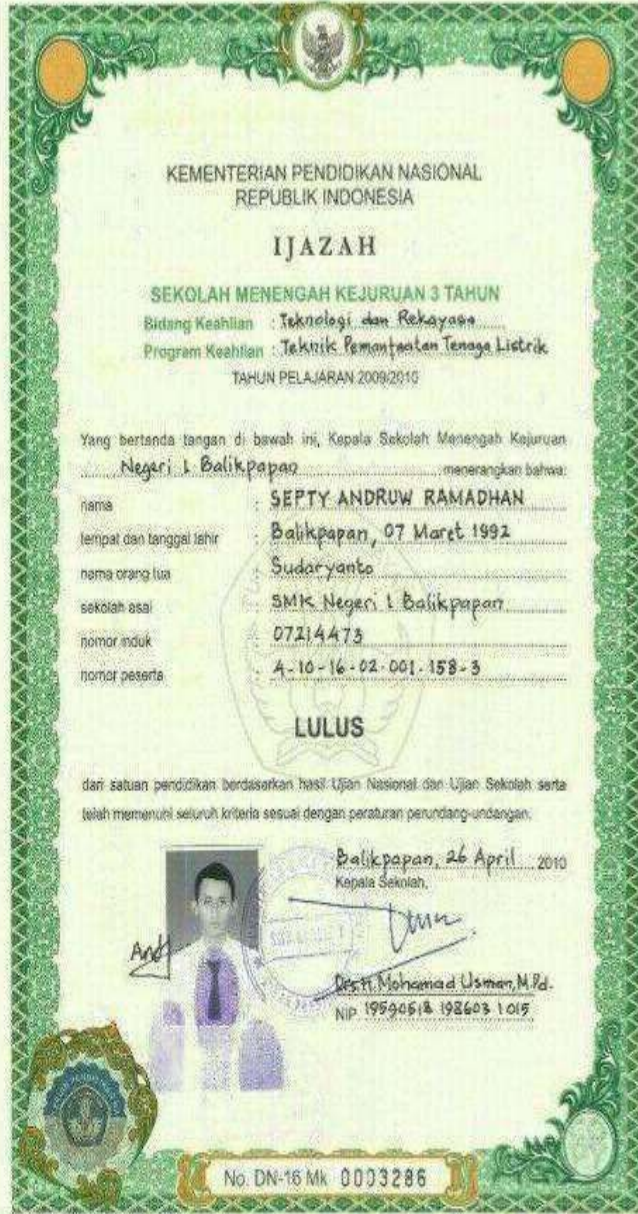 KEMENTERIAN PENDIDIKAN NASIONAL
REPUBLIK INDONESIA
IJAZAH
SEKOLAH MENENGAH KEJURUAN 3 TAHUN
Bidang Keahlian : Teknologi dan Rekayasa
Program Keahlian : Teknik Pemanfaatan Tenaga Listrik
TAHUN PELAJARAN 2009/2010
Yang bertanda tangan di bawah ini, Kepala Sekolah Menengah Kejuruan
Negeri 1 Balikpapan menerangkan bahwa:
nama : SEPTY ANDRUW RAMADHAN
tempat dan tanggal lahir : Balikpapan, 07 Maret 1992
nama orang tua : Sudaryanto
sekolah asal : SMK Negeri 1 Balikpapan
nomor induk : 07214473
nomor peserta : 4-10-16-02-001-158-3
LULUS
dari satuan pendidikan berdasarkan hasil Ujian Nasional dan Ujian Sekolah serta
telah memenuhi seluruh kriteria sesuai dengan peraturan perundang-undangan.
Balikpapan, 26 April 2010
Kepala Sekolah,
Drs. H. Mohamad Usman, M.Pd.
NIP 19590518 198603 1 015
No. DN-16 Mk 0003286